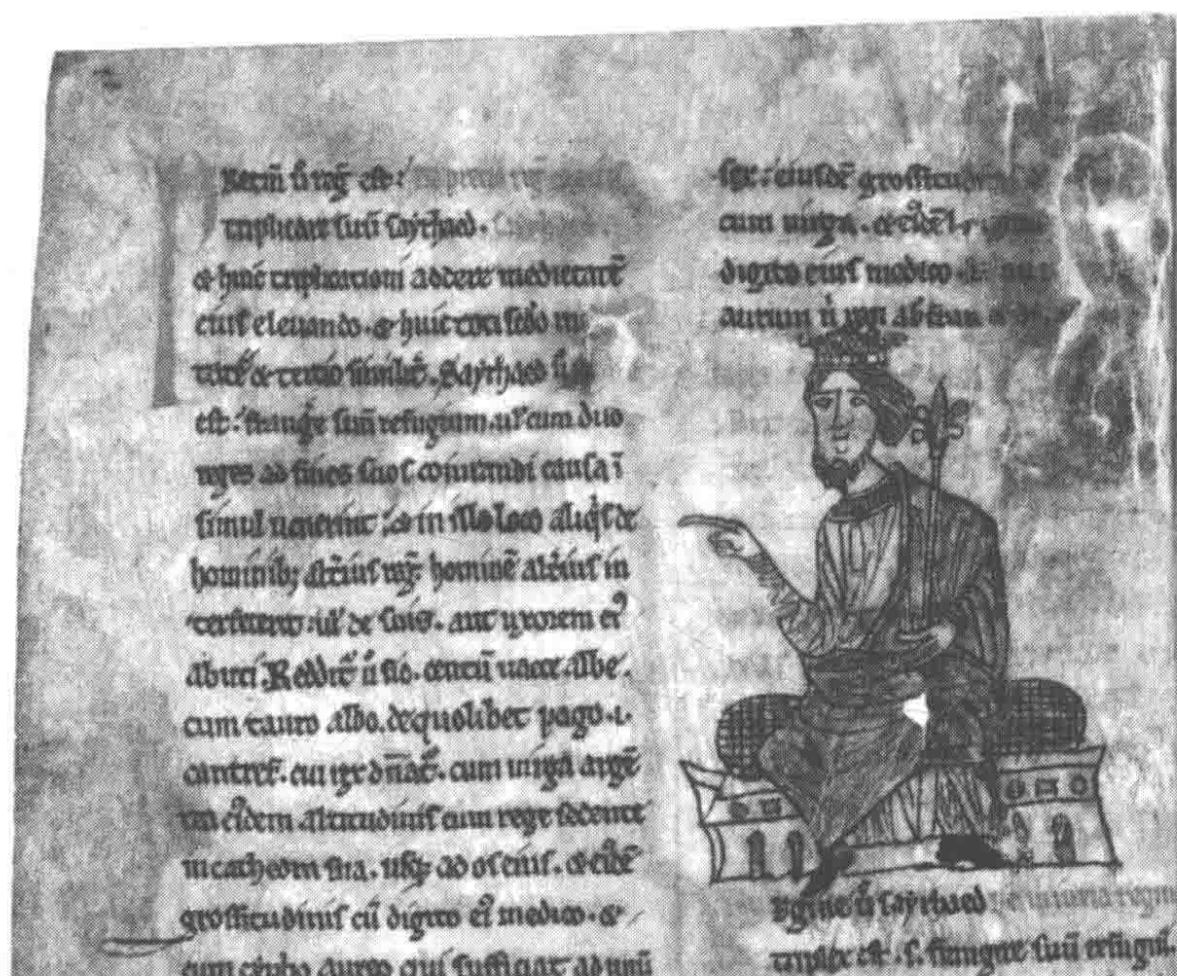 triplicare suū sayrhaed.
& huic triplicationi addere medietatē
eius elevando. & huic toti scđo
& tertio similit̄. Sayrhaed
est: frangere suū refugium. uł cum duo
reges ad fines suos coniurandi causa ī
simul uenerint: & in illo loco aliq̇s de
hominib; alt̄ius reḡ: hominē alt̄ius in
terfecerit. uł de suis. aut uxorem ei᷒
abuti. Reddit̄ ū sic. centū uacce albe.
cum tauro albo. de quolibet pago .i.
cantref. cui rex dn̄at̄. cum uirga argē
tea eidem altitudinis cum rege sedente
in cathedra sua. usq; ad os eius. & eidē
grossitudinis cū digito ei᷒ medico. &
cum cipho aureo qui sufficiat ad unū
eiusdē
cum uirga. & eidē
digito eius medico.
aurum ū non
Regine ū sayrhaed de iniuria regine
triplex est. s. frangere suū refugiū.